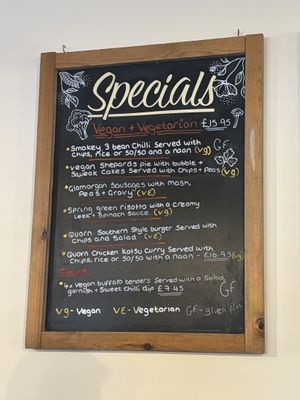 Specials
Vegan + Vegetarian £15.95
Smokey 3 bean Chilli Served with GF
chips, rice or 50/50 and a naan (vg)
Vegan Shepards pie with bubble +
Squeak Cakes Served with Chips + Peas (vg)
Glamorgan Sausages with mash,
Peas + Gravy (vE)
Spring green risotto with a creamy
Leek + Spinach Sauce (vg)
Quorn Southern Style burger Served with
Chips and Salad (vE)
Quorn Chicken Katsu Curry Served with
Chips, rice or 50/50 with a naan - £16.95 (vg)
4x Vegan buffalo tenders Served with a Salad
garnish + Sweet Chilli dip £7.45 GF
vg - Vegan VE - Vegetarian GF - gluten